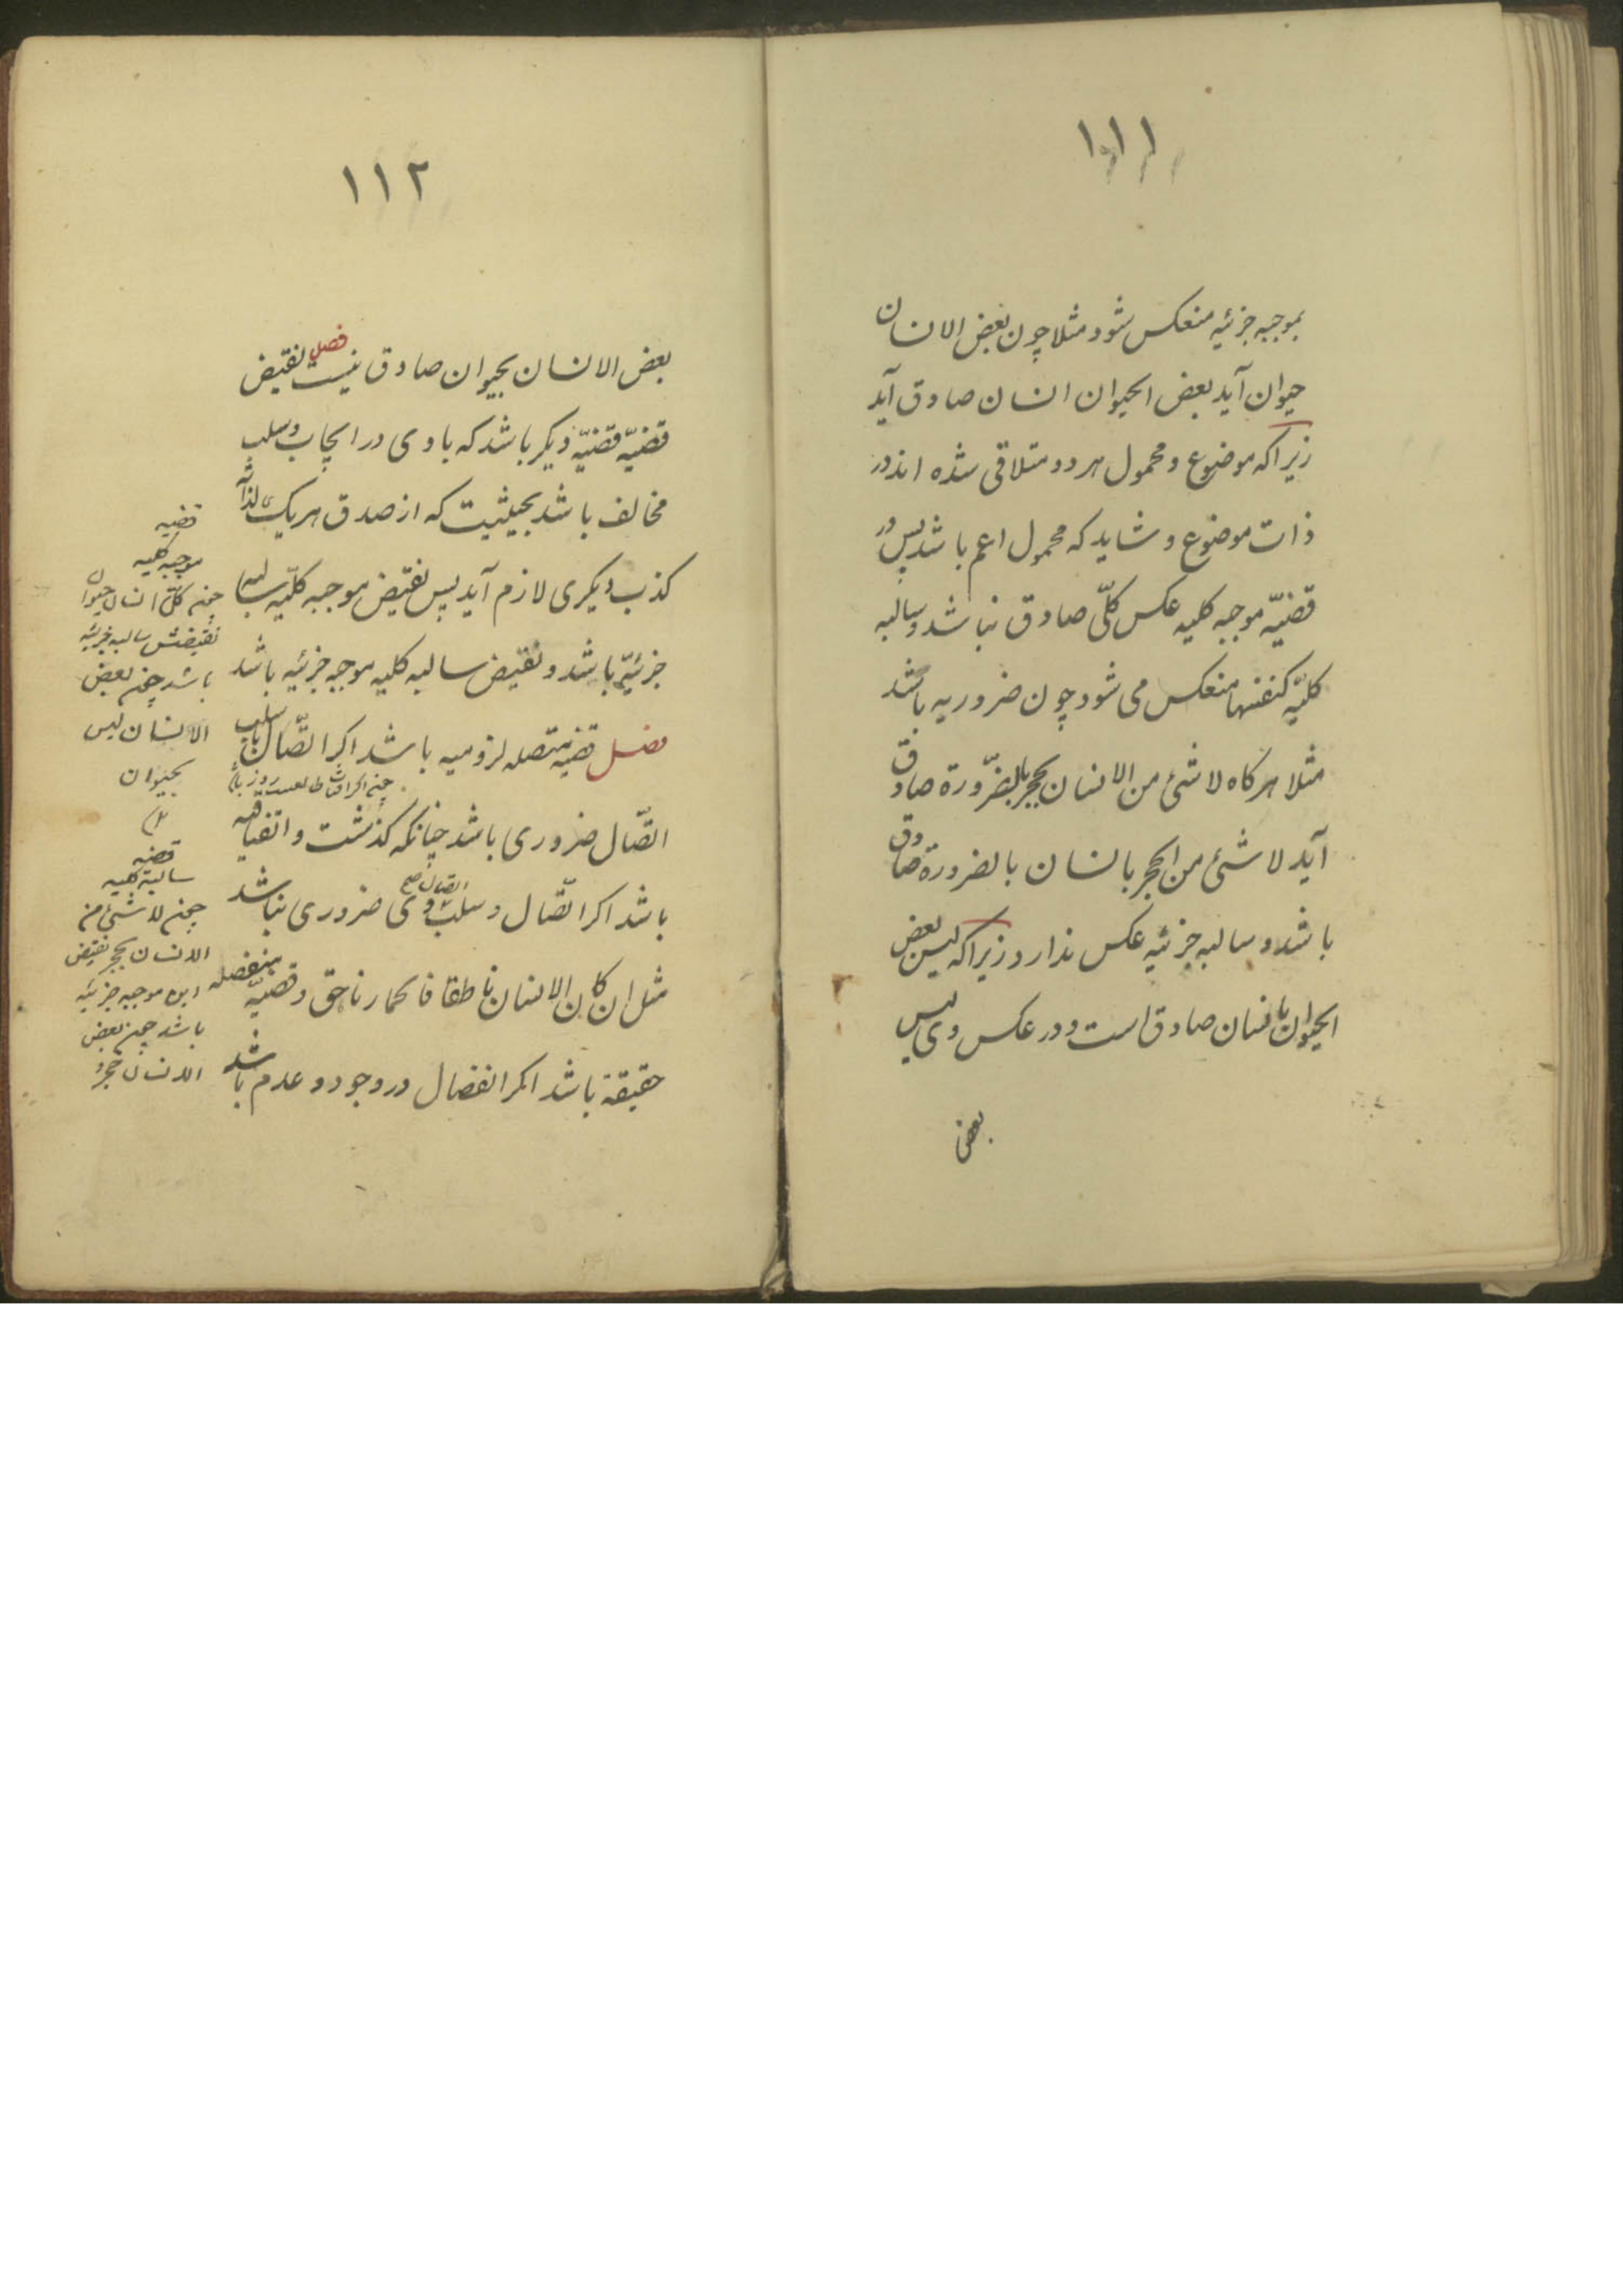 ١١١
بموجبه جزئیه منعکس شود مثلا چون بعض الانسان
حیوان آید بعض الحیوان انسان صادق آید
زیراکه موضوع و محمول هر دو متلاقی شده اند در
ذات موضوع و شاید که محمول اعم باشد پس در
قضیّه موجبه کلیه عکس کلّی صادق نباشد و سالبه
کلیّه کنفسها منعکس می شود چون ضروریه باشد
مثلا هرکاه لا شئ من الانسان بحجر بالضّرورة صادق
آید لا شئ من الحجر بانسان بالضرورة صادق
باشد و سالبه جزئیه عکس ندارد زیراکه لیس بعض
الحیوان بانسان صادق است و در عکس وی لیس
بعض
١١٢
بعض الانسان بحیوان صادق نیست فصل نقیض
قضیّه قضیّه دیکر باشد که با وی در ایجاب و سلب
مخالف باشد بحیثیت که از صدق هر یک لذاته
کذب دیکری لازم آید پس نقیض موجبه کلّیه سالبه
جزئیّه باشد و نقیض سالبه کلیه موجبه جزئیه باشد
فصل قضیه متصله لزومیه باشد اکر اتّصال یا سلب
اتّصال ضروری باشد چنانکه کذشت و اتفاقیه
باشد اکر اتّصال و سلب اتصال صح وی ضروری نباشد
مثل ان کان الانسان ناطقا فالحمار ناهق و قضیّه منفصله
حقیقة باشد اکر انفصال در وجود و عدم باشد
قضیه
موجبه کلیه
چون کلّ انسان حیوان
نقیضش سالبه جزئیه
باشد چون بعض
الانسان لیس
بحیوان
قضیه
سالبة کلیه
چون لا شئ من
الانسان بحجر نقیض
این موجبه جزئیه
باشد چون بعض
الانسان حجر